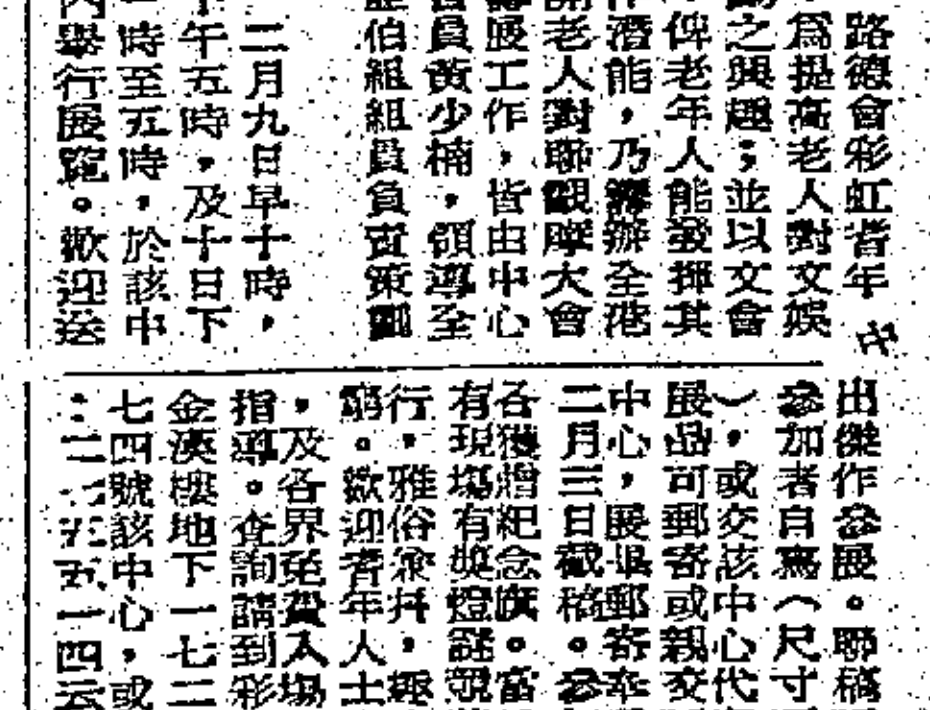 路德會彩虹耆年中
為提高老人對文娛
之興趣；並以文會
俾老年人能發揮其
潛能，乃籌辦全港
老人對聯觀摩大會
展工作，皆由中心
員黃少楠，領導全
伯組組員負責策劃
二月九日早十時，
午五時，及十日下
時至五時，於該中
內舉行展覽。歡迎送
出傑作參展。聯稿
參加者自寫（尺寸
），或交該中心代
展品可郵寄或親交
中心，展退郵寄奉
二月三日截稿。參
各獲贈紀念旗。富
有現場有獎燈謎競
行，雅俗共
窮。歡迎耆年人士
，及各界免費入場
指導。查詢請到彩
金漢樓地下一七二
七四號該中心，或